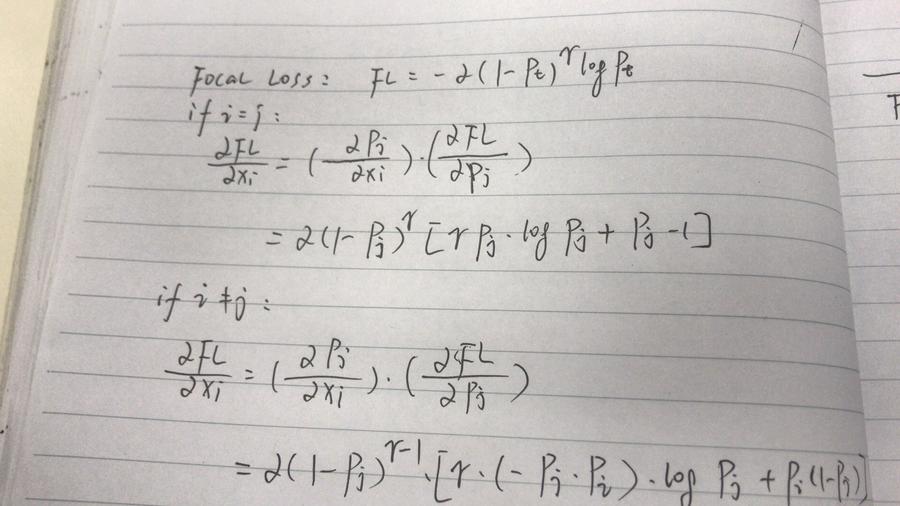 Focal Loss: FL = -α(1-Pt)^γ log Pt
if i=j:
∂FL/∂xi = (∂Pj/∂xi)·(∂FL/∂Pj)
= α(1-Pj)^γ [γPj·log Pj + Pj -1]
if i≠j:
∂FL/∂xi = (∂Pj/∂xi)·(∂FL/∂Pj)
= α(1-Pj)^γ-1·[γ·(-Pj·Pi)·log Pj + Pi(1-Pj)]